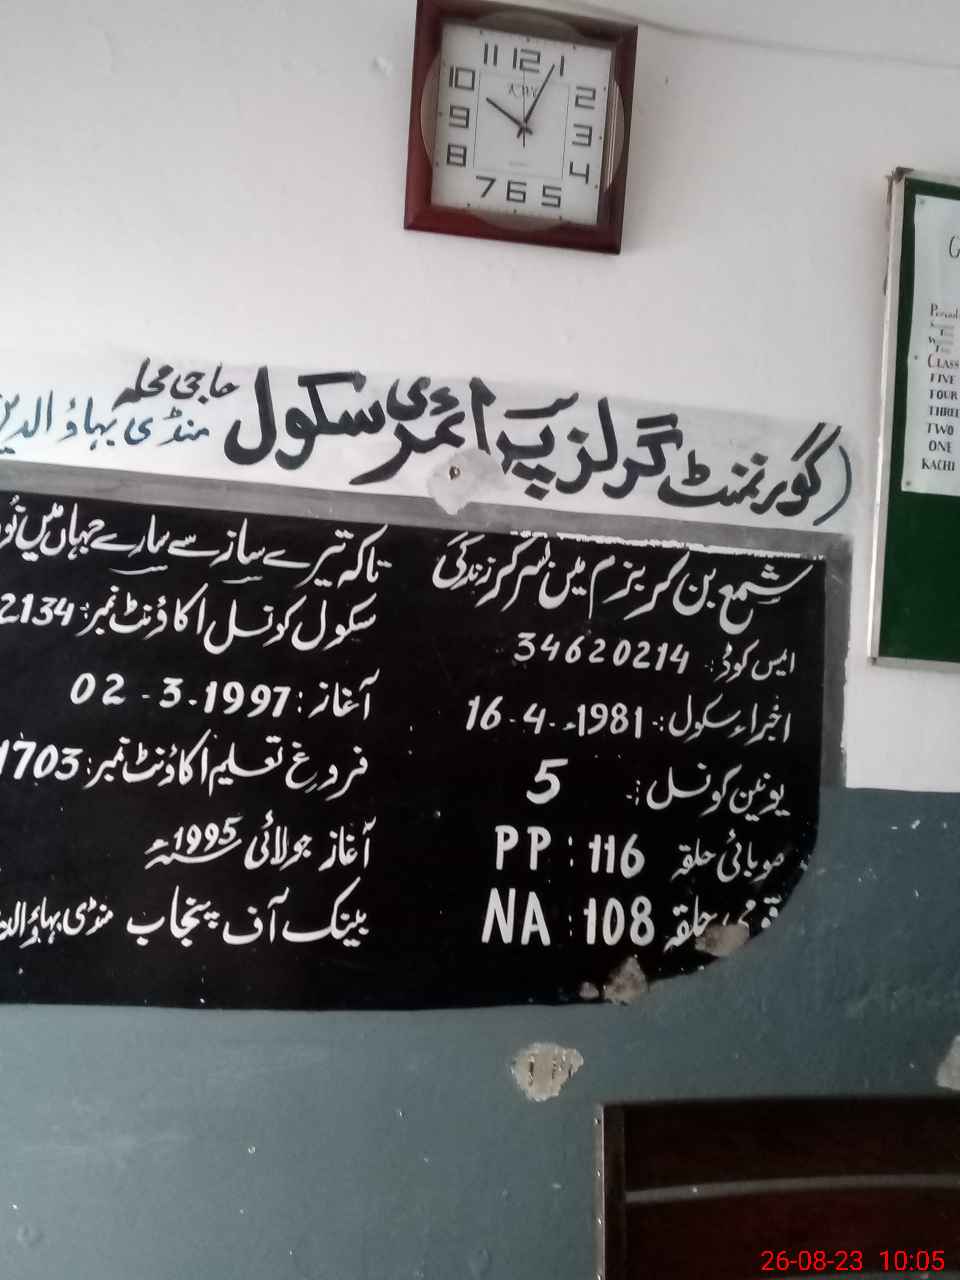 11 12 1
10 2
9 3
8 4
7 6 5
حاجی محلہ
(گورنمنٹ گرلز پرائمری سکول منڈی بہاؤالدین
شمع بن کر بزم میں سرگرز زندگی
تاکہ تیرے ساز سے سارے جہاں میں
ایس کوڈ: 34620214
سکول کونسل اکاؤنٹ نمبر: 2134
اخبراء سکول: 16-4-1981ء
آغاز: 02-3-1997
یونین کونسل: 5
فروغ تعلیم اکاؤنٹ نمبر: 1703
صوبائی حلقہ PP: 116
آغاز جولائی 1995ء
قومی حلقہ NA: 108
بینک آف پنجاب منڈی بہاؤالدین
G
Period
CLASS
FIVE
FOUR
THREE
TWO
ONE
KACHI
26-08-23 10:05